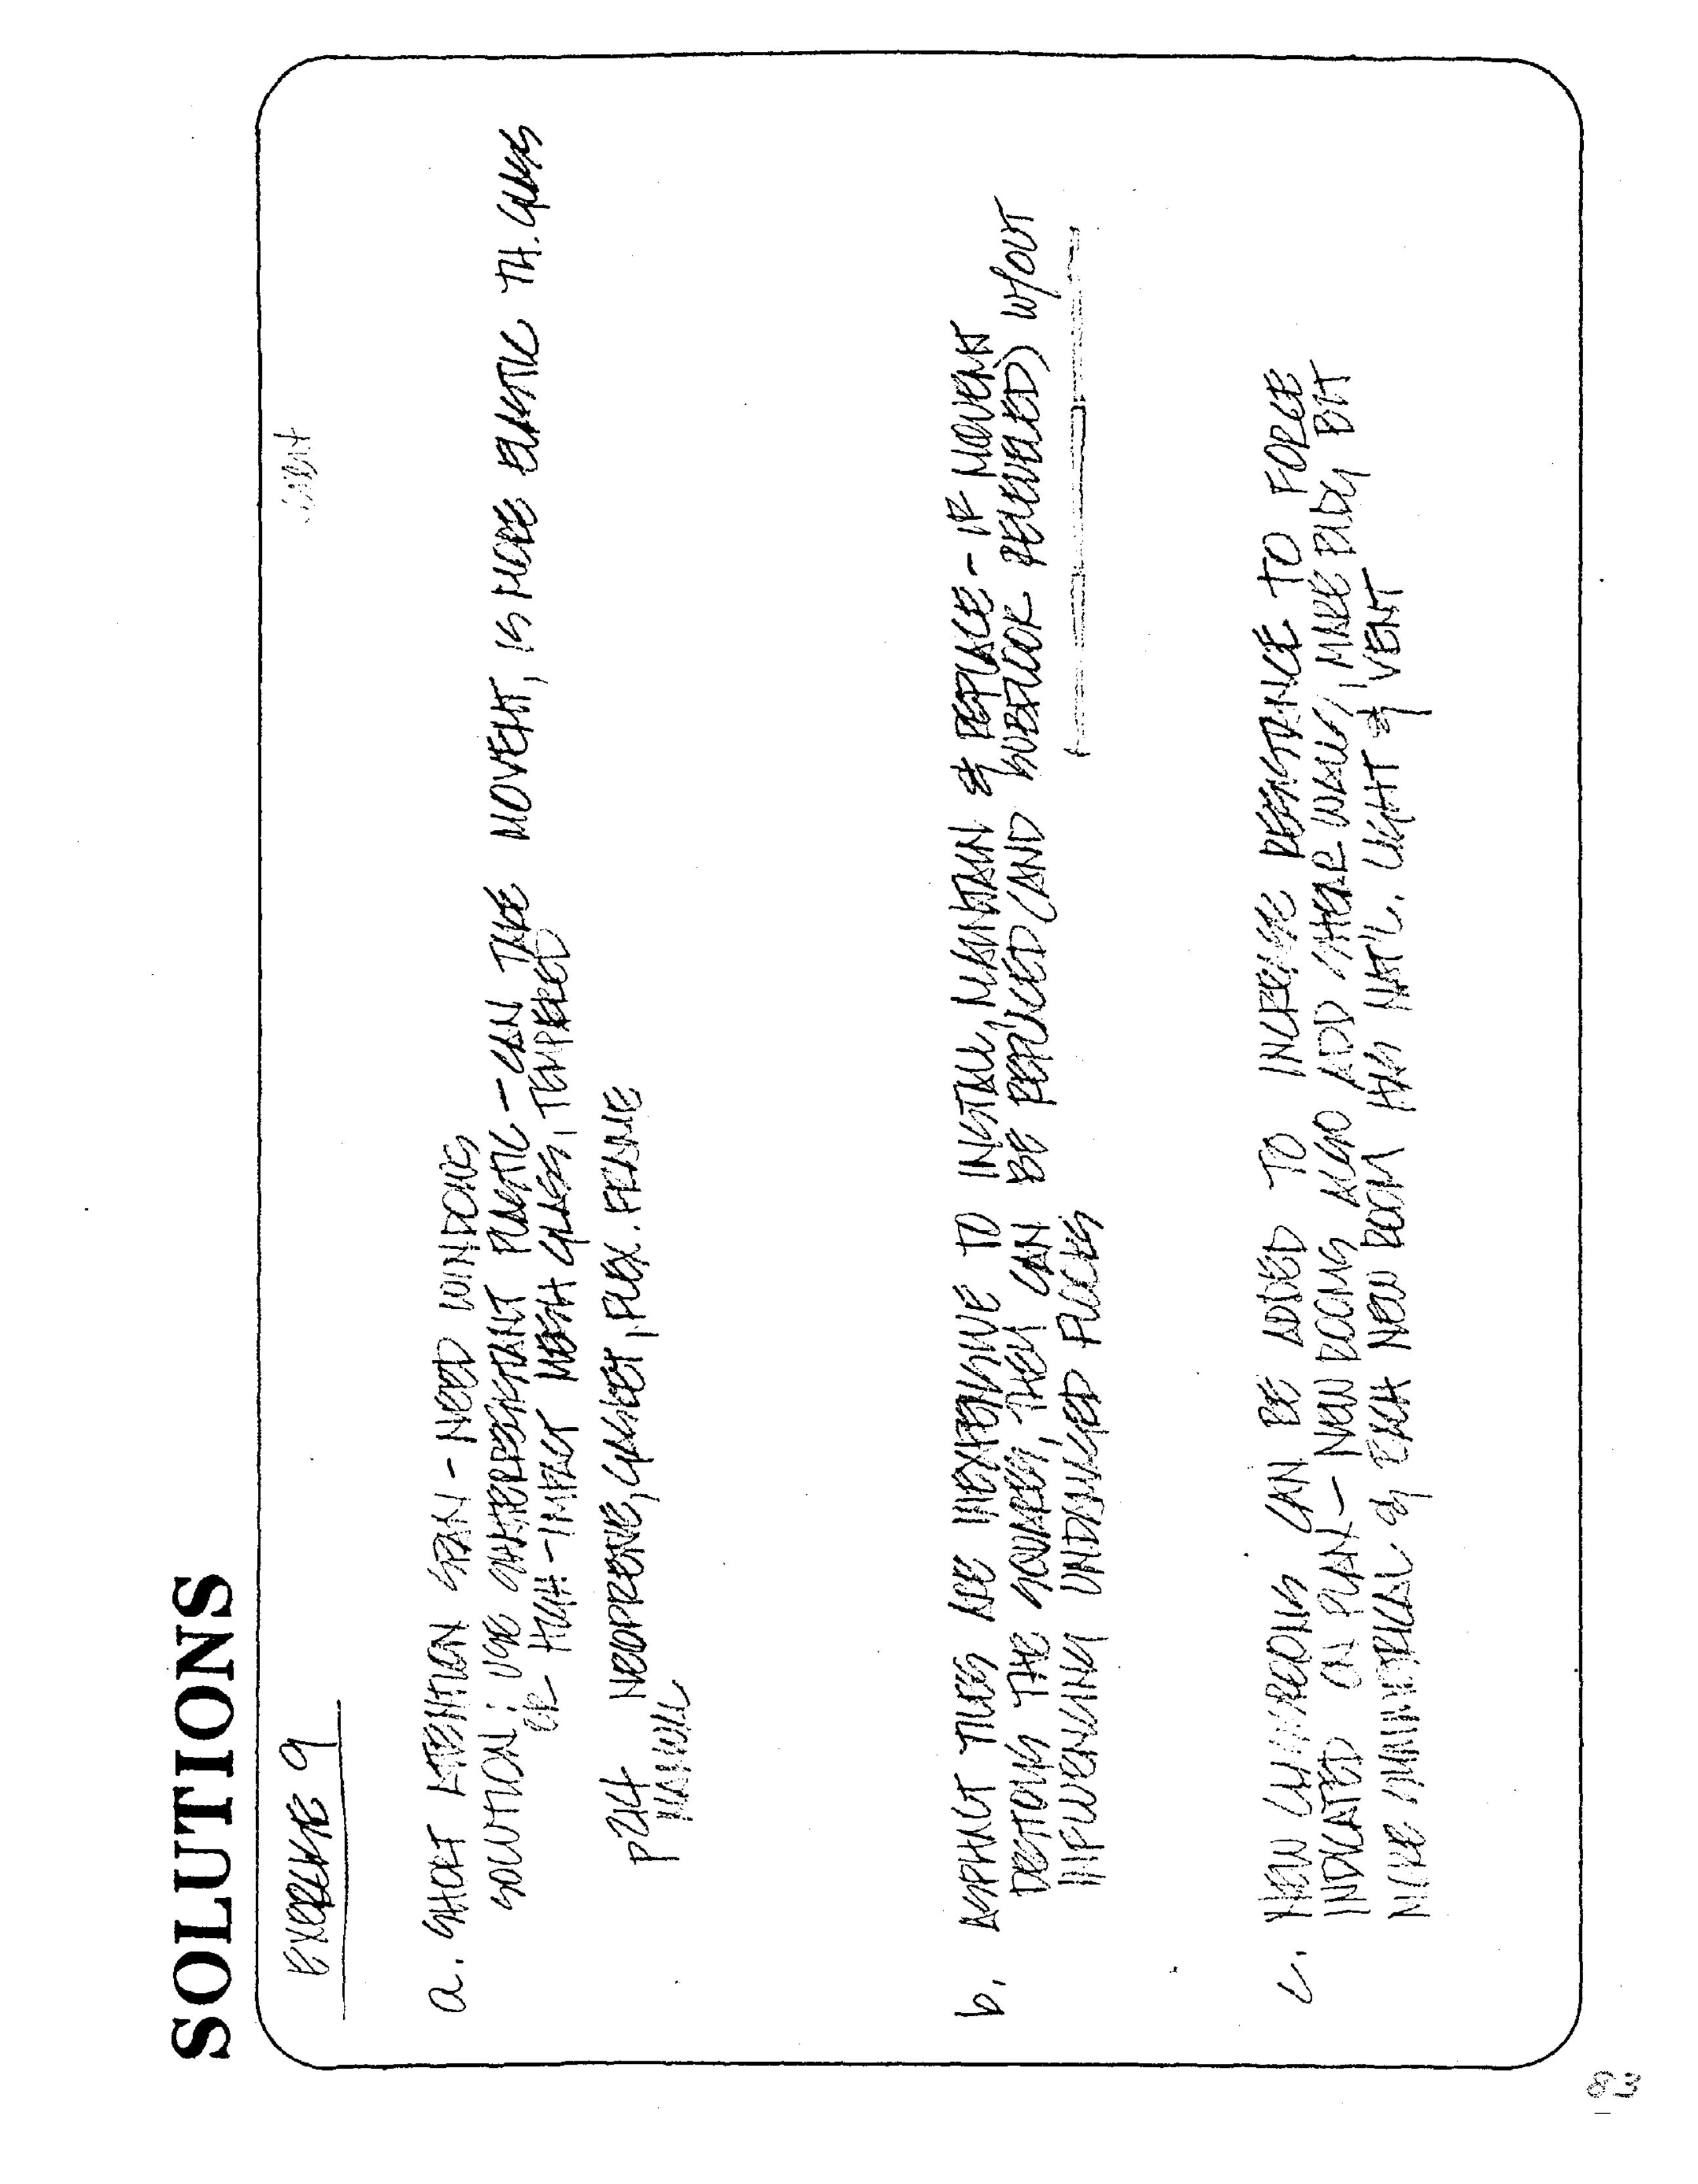 SOLUTIONS
EXERCISE 9
a. SHORT ATTENTION SPAN - NEED WINDOWS
SOLUTION: USE SHATTERRESISTANT PLASTIC - CAN TAKE MOVEM'T, IS MORE ELASTIC TH. GLASS
OR HIGH-IMPACT MESH GLASS, TEMPERED
p244 NEOPRENE, GASKET, FLEX. FRAME
MANUAL
b. ASPHALT TILES ARE INEXPENSIVE TO INSTALL, MAINTAIN & REPLACE - IF MOVEM'T
DESTROYS THE SQUARES, THEY CAN BE REPLACED (AND SUBFLOOR RELEVELED) W/OUT
INFLUENCING UNDAMAGED PLACES
c. NEW CLASSROOMS CAN BE ADDED TO INCREASE RESISTANCE TO FORCE
INDICATED ON PLAN - NEW ROOMS ALSO ADD SHEAR WALLS, MAKE BLDG BIT
MORE SYMMETRICAL & EACH NEW ROOM HAS NAT'L. LIGHT & VENT
83